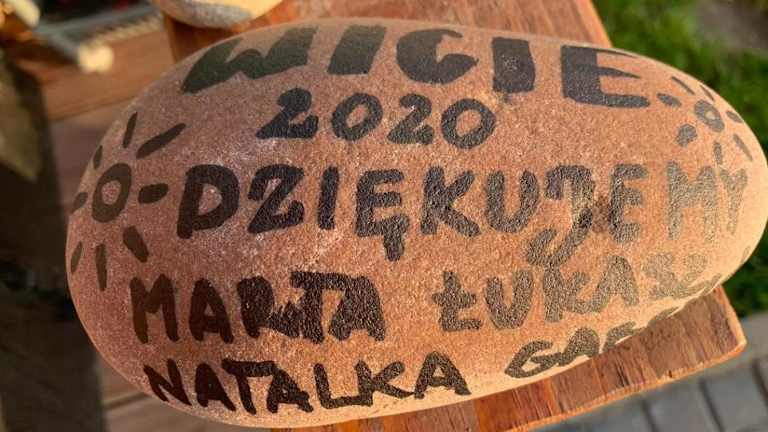 WICIE
2020
DZIĘKUJEMY
MARTA ŁUKASZ
NATALKA